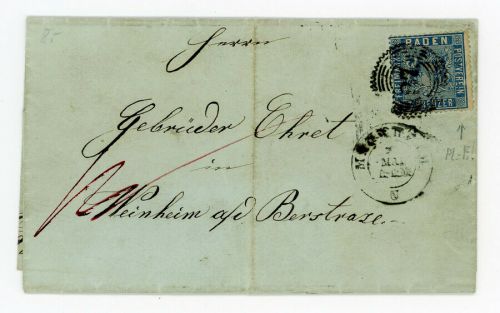 2.-
Herrn
BADEN
FREIMARKE
POSTVEREIN
KREUZER
Gebrüder Ehret
Pl.-F.!
in
MAI
Weinheim a/d Berstraze.